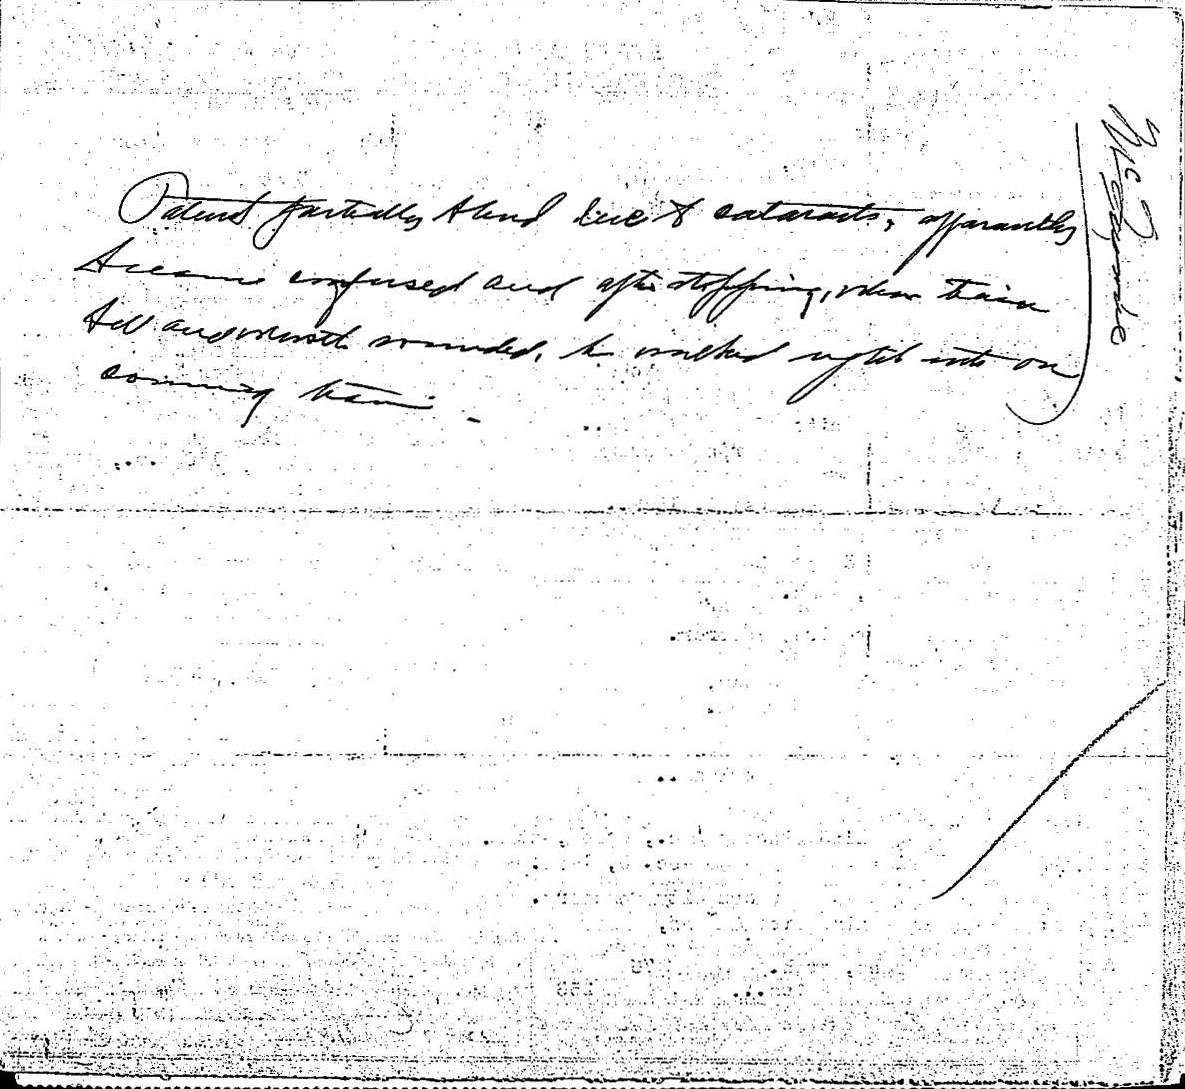 Patient partially blind due to cataracts, apparantly
became confused and after stopping, when train
bell and whistle sounded, he walked right into on
coming train -